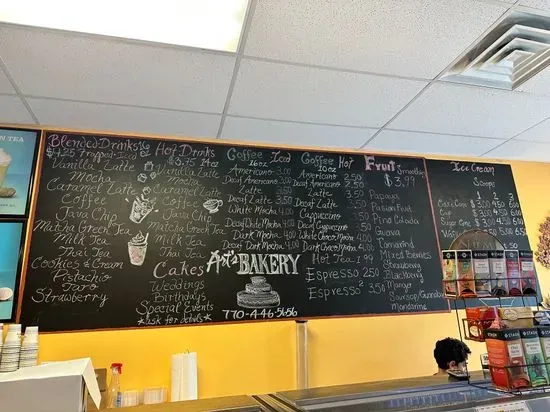 Blended Drinks
$4.25 Frapped Iced
Vanilla Latte
Mocha
Caramel Latte
Coffee
Java Chip
Matcha Green Tea
Milk Tea
Thai Tea
Cookies & Cream
Pistachio
Taro
Strawberry
Hot Drinks
$3.75 14oz
Vanilla Latte
Mocha
Caramel Latte
Coffee
Java Chip
Matcha Green Tea
Milk Tea
Thai Tea
Cakes
Weddings
Birthdays
Special Events
*Ask for details*
Coffee Iced
16oz
Americano 3.00
Decaf Americano
Latte
Decaf Latte
White Mocha 4.00
Decaf White Mocha 4.00
Dark Mocha 4.00
Decaf Dark Mocha 4.00
Art's BAKERY
770-446-5656
Coffee Hot
10oz
Americano 2.50
Decaf Americano 2.50
Latte
Decaf Latte 3.50
Cappuccino
Decaf Cappuccino
White Mocha
Decaf White Mocha
Dark Mocha
Decaf Dark Mocha
Espresso 2.50
Espresso² 3.50
Fruit Smoothie
$3.99
Papaya
Passion Fruit
Pina Colada
Guava
Tamarind
Mixed Berries
Strawberry
Blackberry
Mango
Soursop/Guanabana
Mandarine
Ice Cream
Scoops
Cake Cone 3.00 4.50 6.00
Cup 3.00 4.50 6.00
Sugar Cone
STASH
STASH
TEA